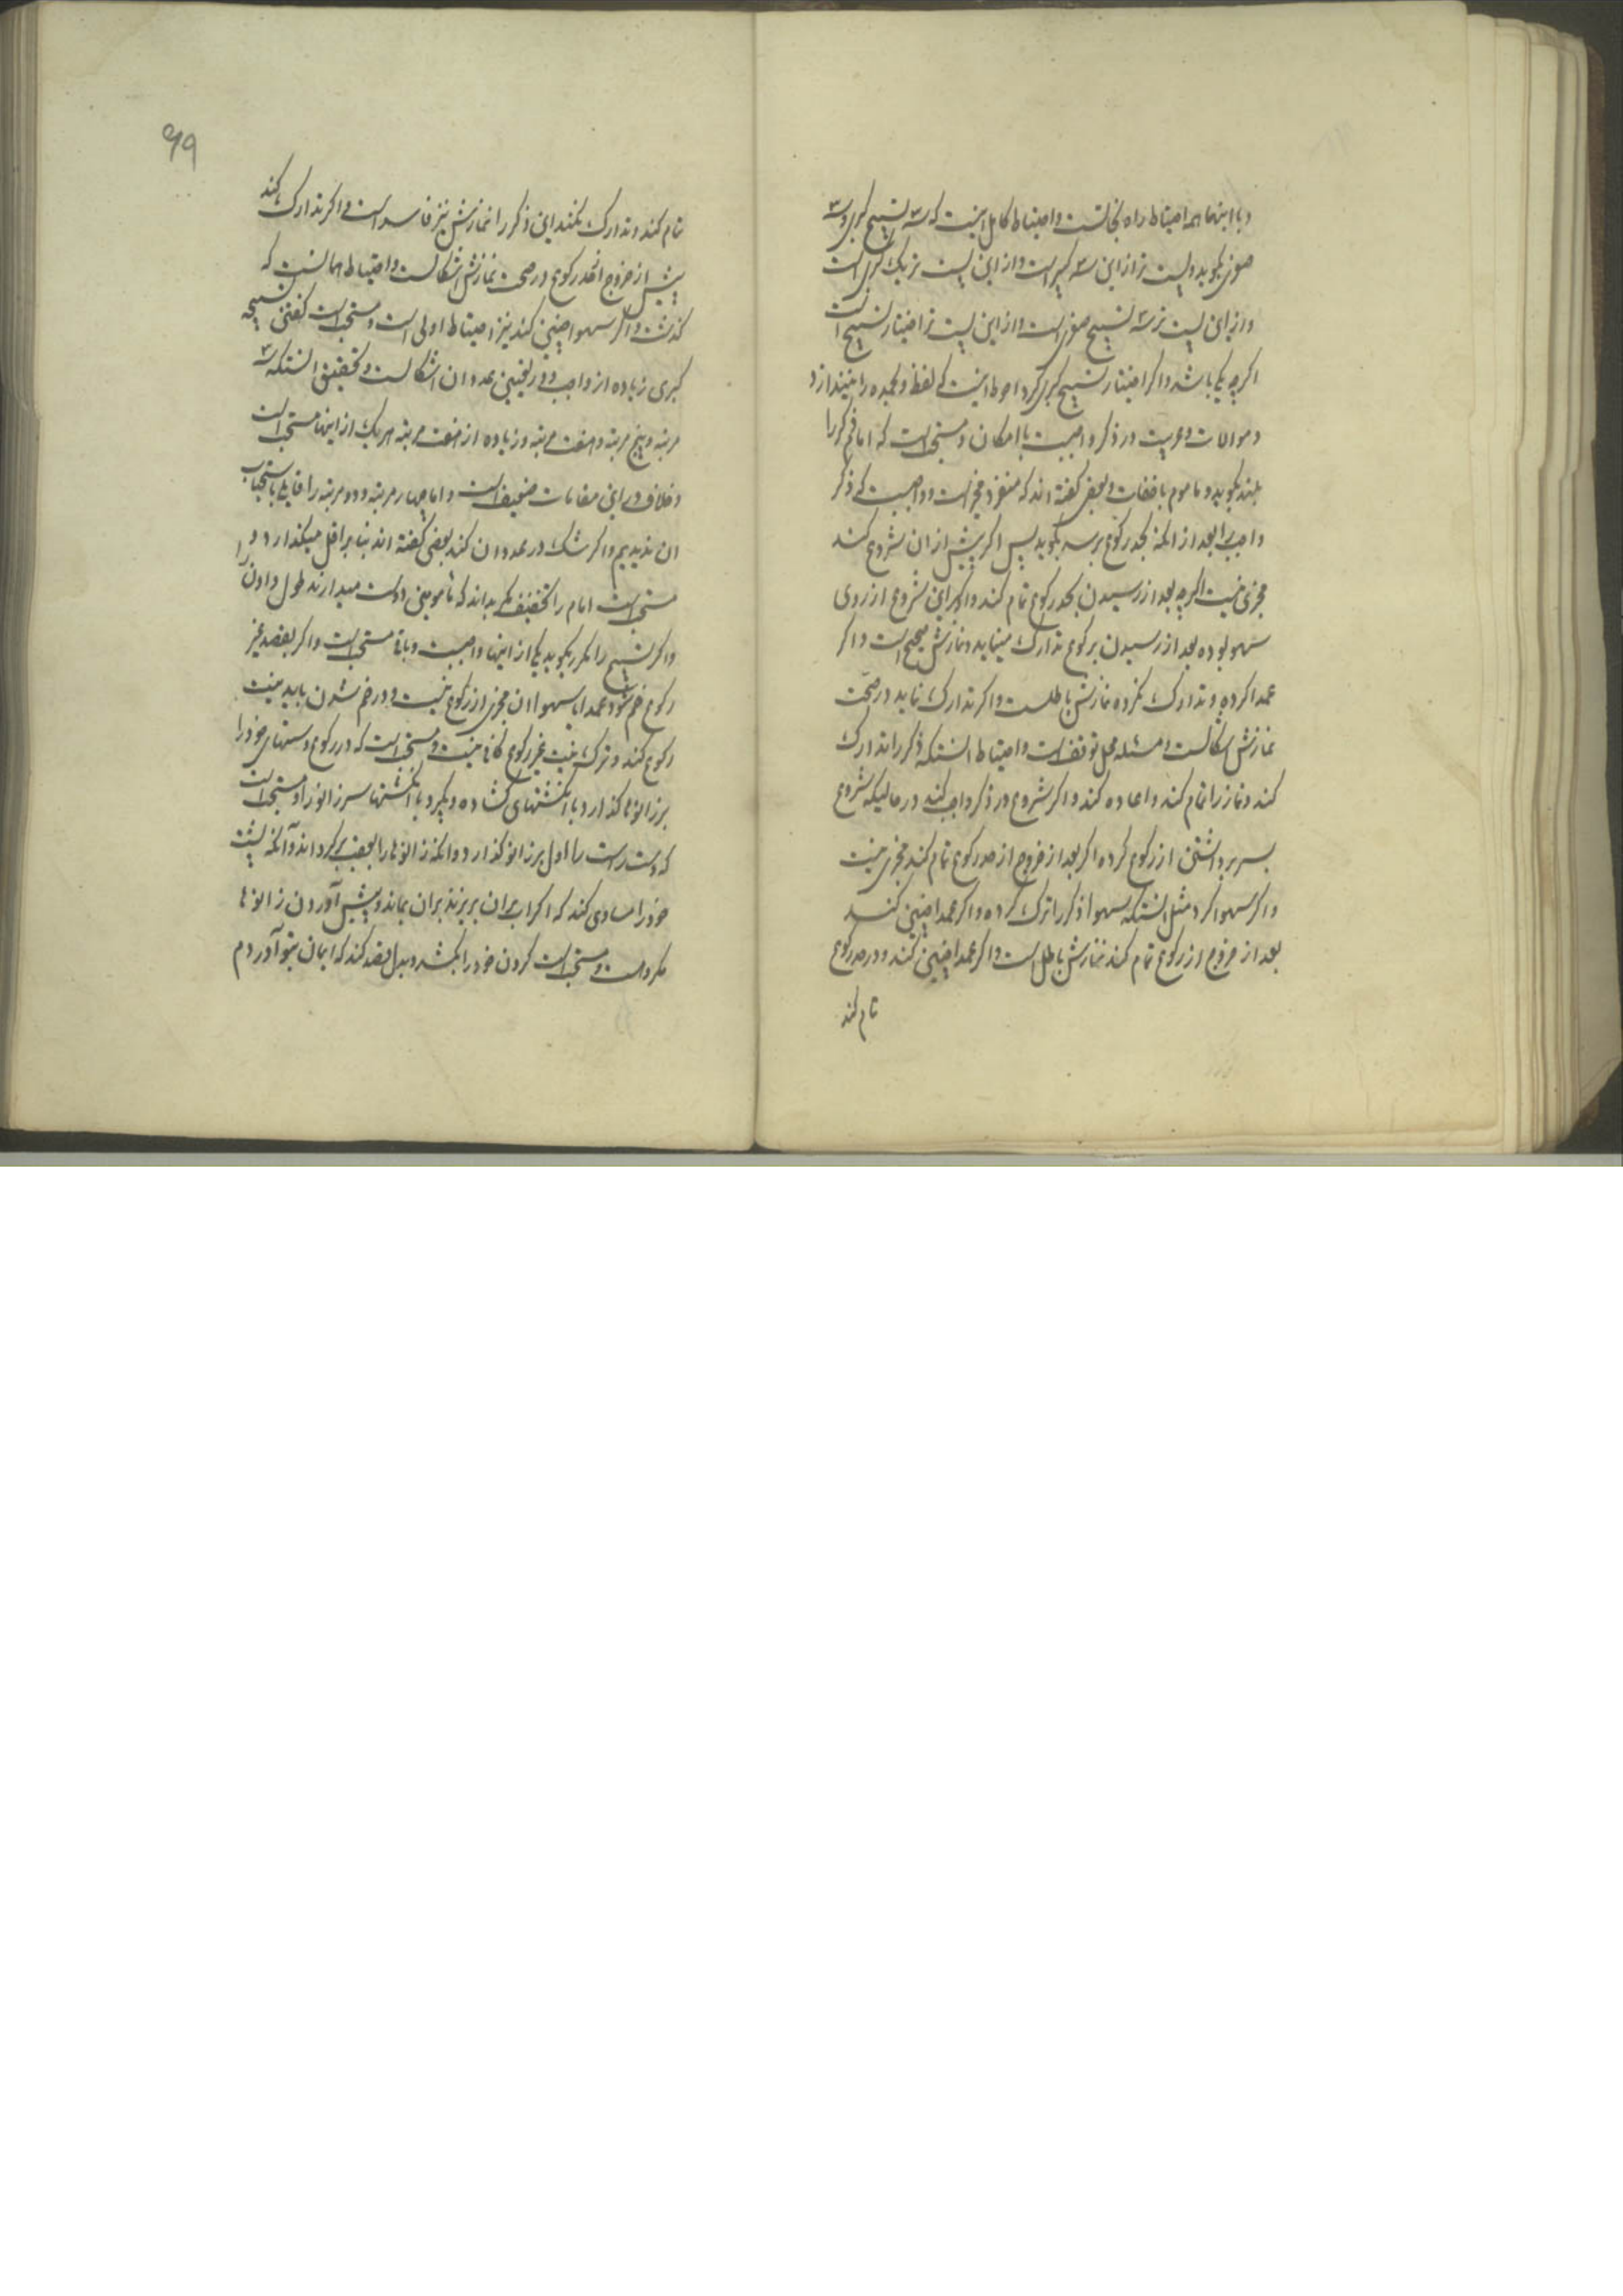 و با اینها همه احتیاط راه نجاتست و احتیاط کامل اینست که سه تسبیح کبری و سه
صغری بگوید و پست تر از این سه کبری است و از این پست تر یک کبری است
و از این پست تر سه تسبیح صغری است و از این پست تر اختیار تسبیح است
اگرچه یکی باشد و اگر اختیار تسبیح کبری کرد احوط اینست که لفظ و بحمده را نیندازد
و موالات و عربیت در ذکر واجبست با امکان و مستحب است که امام ذکر را
بلند بگوید و ماموم باخفات و بعضی گفته اند که منفرد مخیر است و واجبست که ذکر
واجب را بعد از آنکه بحد رکوع برسد بگوید پس اگر پیش از ان شروع کند
مجزی نیست اگرچه بعد از رسیدن بحد رکوع تمام کند و اگر این شروع از روی
سهو بوده بعد از رسیدن برکوع تدارک مینماید و نمازش صحیح است و اگر
عمدا کرده و تدارک نکرده نمازش باطلست و اگر تدارک نماید در صحت
نمازش اشکالست و مسئله محل توقف است و احتیاط انستکه ذکر را تدارک
کند و نماز را تمام کند و اعاده کند و اگر شروع در ذکر واجب کند در حالیکه شروع
بسر برداشتن از رکوع کرده اگر بعد از خروج از حد رکوع تمام کند مجزی نیست
و اگر سهوا کرد مثل انستکه سهوا ذکر را ترک کرده و اگر عمدا چنین کند
بعد از خروج از رکوع تمام کند نمازش باطل است و اگر عمدا چنین کند و در حد رکوع
تمام کند
۹۹
تمام کند و تدارک نکند این ذکر را نمازش نیز فاسد است و اگر تدارک کند
پیش از خروج از حد رکوع در صحت نمازش اشکالست و احتیاط همانست که
گذشت و اگر سهوا چنین کند نیز احتیاط اولی است و مستحب است گفتن تسبیحه
کبری زیاده از واجب و در تعیین عدد ان اشکالست و تحقیق انستکه سه
مرتبه و پنج مرتبه و هفت مرتبه و زیاده از هفت مرتبه هر یک از اینها مستحب است
و خلاف در این مقامات ضعیف است و اما چهار مرتبه و دو مرتبه را قایلی باستحباب
ان ندیدیم و اگر شک در عدد ان کند بعضی گفته اند بنا بر اقل میگذارد و
مستحب است امام را تخفیف مگر بداند که مامومین دوست میدارند طول دادن را
و اگر تسبیح را مکرر بگوید یکی از اینها واجبست و باقی مستحب است و اگر بقصد غیر
رکوع خم شود عمدا یا سهوا ان مجزی از رکوع نیست و در خم شدن باید نیت
رکوع کند و ترک نیت غیر رکوع کافی نیست و مستحب است که در رکوع دستهای خود را
بر زانوها گذارد با انگشتهای گشاده و بگیرد با انگشتها سر زانو را و مستحب است
که دست راست را اول بر زانو گذارد و آنکه زانوها را بعقب برگرداند و آنکه پشت
خود را مساوی کند که اگر اب بر ان بریزند بر ان بماند و پیش آوردن زانوها
مکروه است و مستحب است گردن خود را بکشد و بدل قصد کند که ایمان بتو آوردم